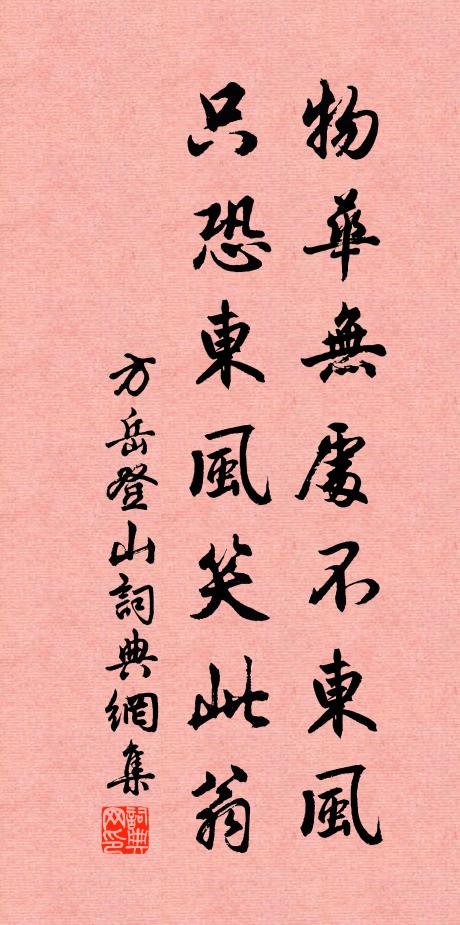 物華無處不東風
只恐東風笑此翁
方岳登山詞典網集
詞典網印